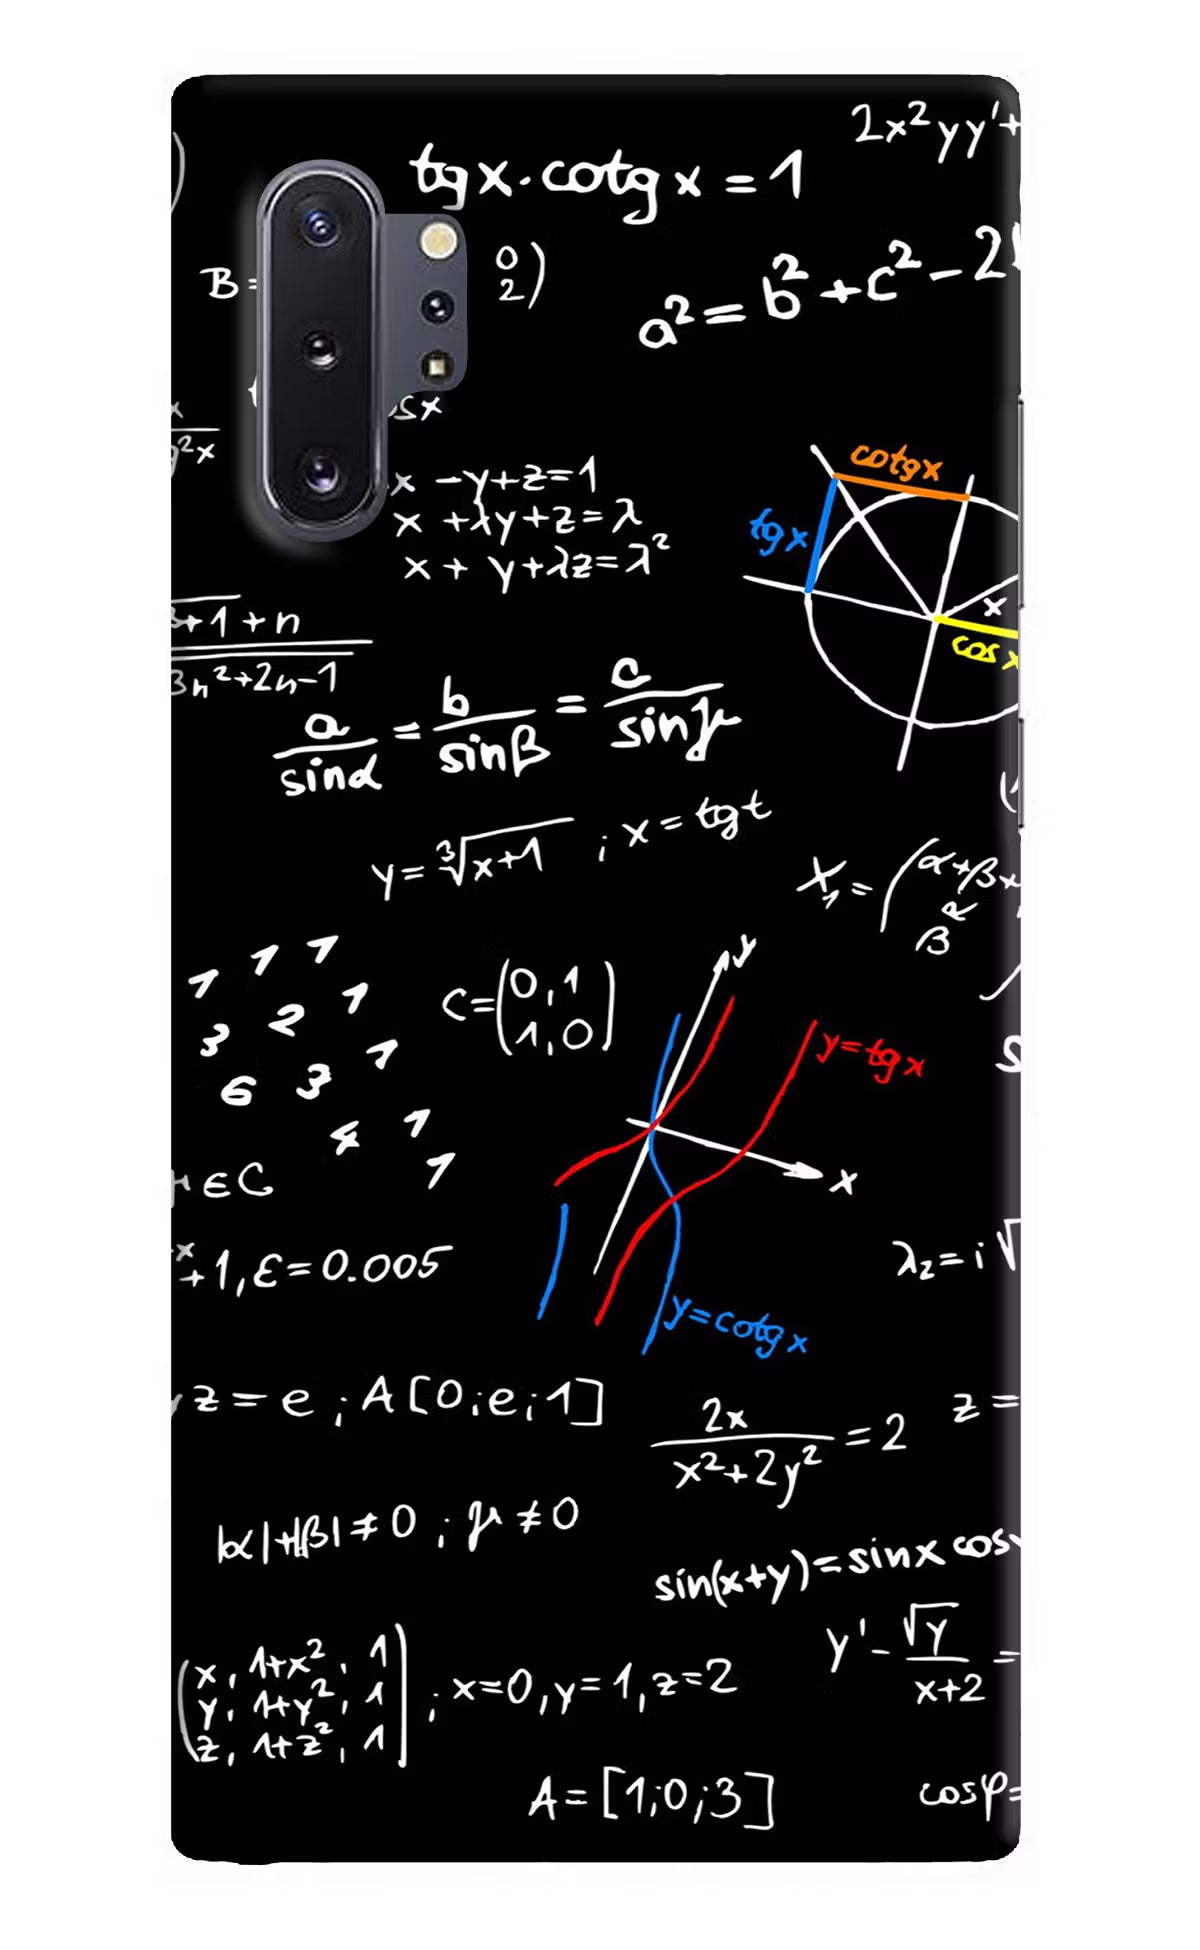 2x²yy'+
tgx·cotgx=1
B=
0
2)
a²=b²+c²-2
sx
x
g²x
x-y+z=1
x+λy+z=λ
x+y+λz=λ²
cotgx
tgx
x
cosx
3+1+n
3n²+2n-1
a/sinα=b/sinβ=c/sinγ
y=³√x+1 ; x=tgt
X₁=(α+βx
β
1 1 1
3 2 1
6 3 1
4 1
1
C=(0,1
1,0)
y
y=tgx
x
y=cotgx
μ∈C
x
+1,ε=0.005
λ₂=i√
z=e ; A[0;e;1]
2x/x²+2y²=2
z=
|α|+|β|≠0 ; μ≠0
sin(x+y)=sinx cos
y'-√y/x+2=
(x, 1+x², 1
y, 1+y², 1
z, 1+z², 1) ; x=0,y=1,z=2
A=[1;0;3]
cosφ=